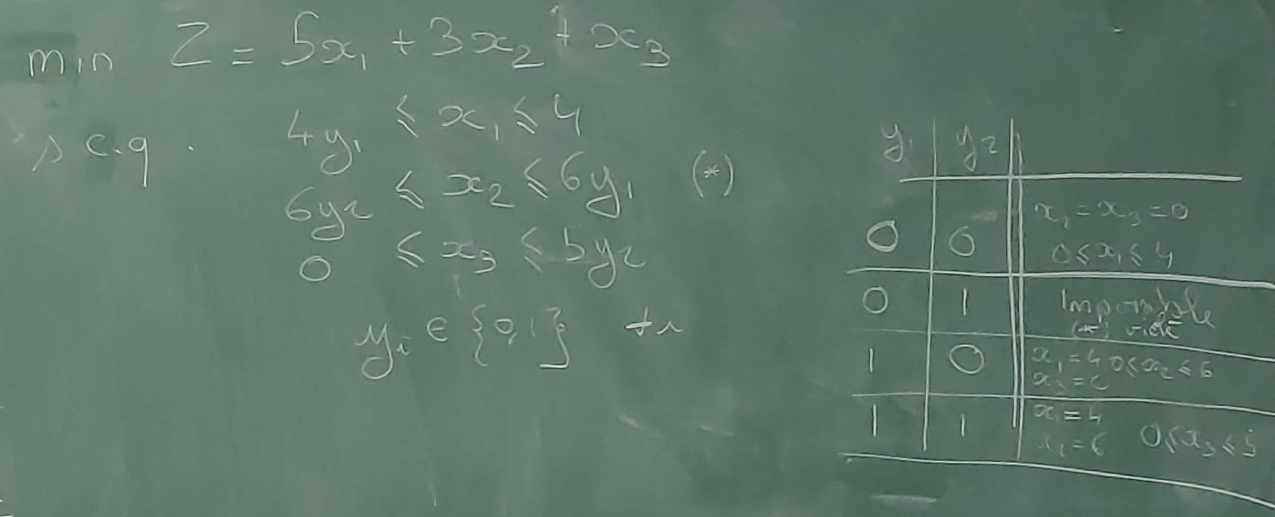 min Z = 5x₁ + 3x₂ + x₃
s c.q. 4y₁ ⩽ x₁ ⩽ 4
6y₂ ⩽ x₂ ⩽ 6y₁ (*)
0 ⩽ x₃ ⩽ 5y₂
yᵢ ∈ {0,1} ∀i
y₁ y₂
x₂ = x₃ = 0
0 0 0 ⩽ x₁ ⩽ 4
0 1 Impossible
(*)
1 0 x₁ = 4 0 ⩽ x₂ ⩽ 6
= 0
1 1 x₁ = 4
x₂ = 6 0 ⩽ x₃ ⩽ 5